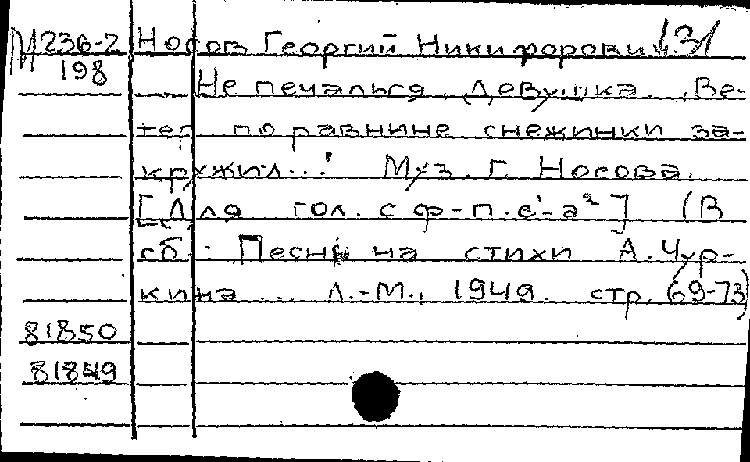 М 236-2 Носов Георгий Никифорович 31
198 Не печалься, девушка. „Ве-
тер по равнине снежинки за-
кружил..." Муз. Г. Носова.
[Для гол. с ф-п. e¹-a²] (В
сб.: Песни на стихи А. Чур-
кина... Л.-М., 1949. стр. 69-73)
81850
81849